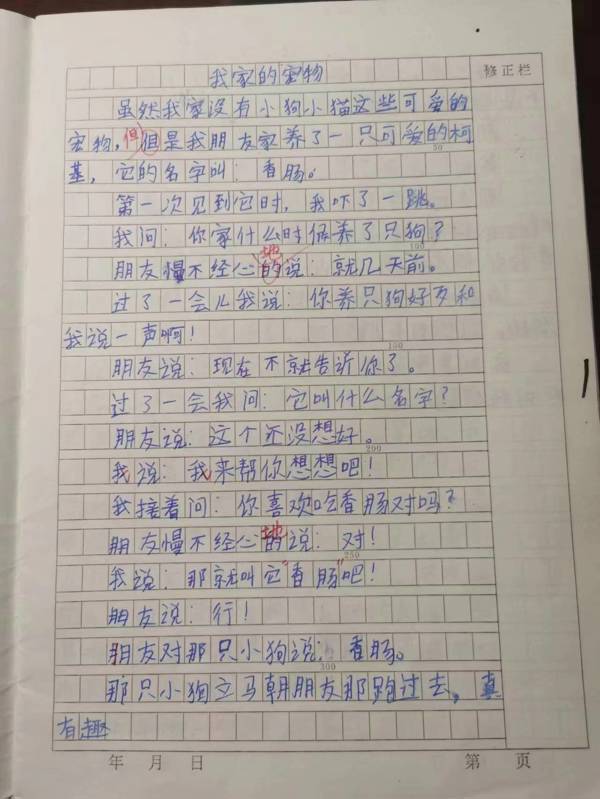 我家的宠物
修正栏
虽然我家没有小狗小猫这些可爱的
宠物,但是我朋友家养了一只可爱的柯
但
50
基,它的名字叫:香肠。
第一次见到它时,我吓了一跳。
我问:你家什么时候养了只狗?
100
地
朋友慢不经心的说:就几天前。
过了一会儿我说:你养只狗好歹和
我说一声啊!
150
朋友说:现在不就告诉你了。
过了一会我问:它叫什么名字?
朋友说:这个还没想好。
200
我说:我来帮你想想吧!
我接着问:你喜欢吃香肠对吗?
地
朋友慢不经心的说:对!
250
我说:那就叫它“香肠”吧!
朋友说:行!
朋友对那只小狗说:香肠。
300
那只小狗立马朝朋友那跑过去,真
有趣
年 月 日
第 页